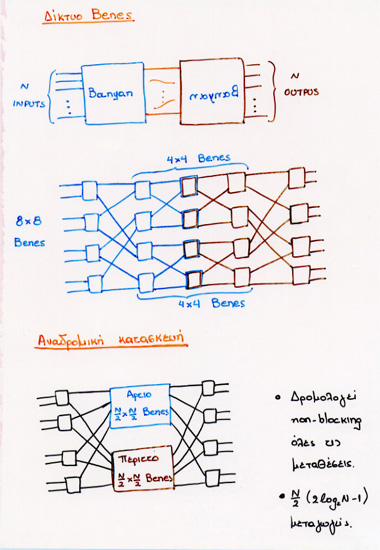 Δίκτυο Benes
N
INPUTS
Banyan
Banyan
N
OUTPUS
4×4 Benes
8×8
Benes
4×4 Benes
Αναδρομική κατασκευή
Άρτιο
N/2 × N/2 Benes
Περιττο
N/2 × N/2 Benes
• Δρομολογεί
non-blocking
όλες τις
μεταθέσεις.
• N/2 (2log₂N-1)
μεταγωγείς.